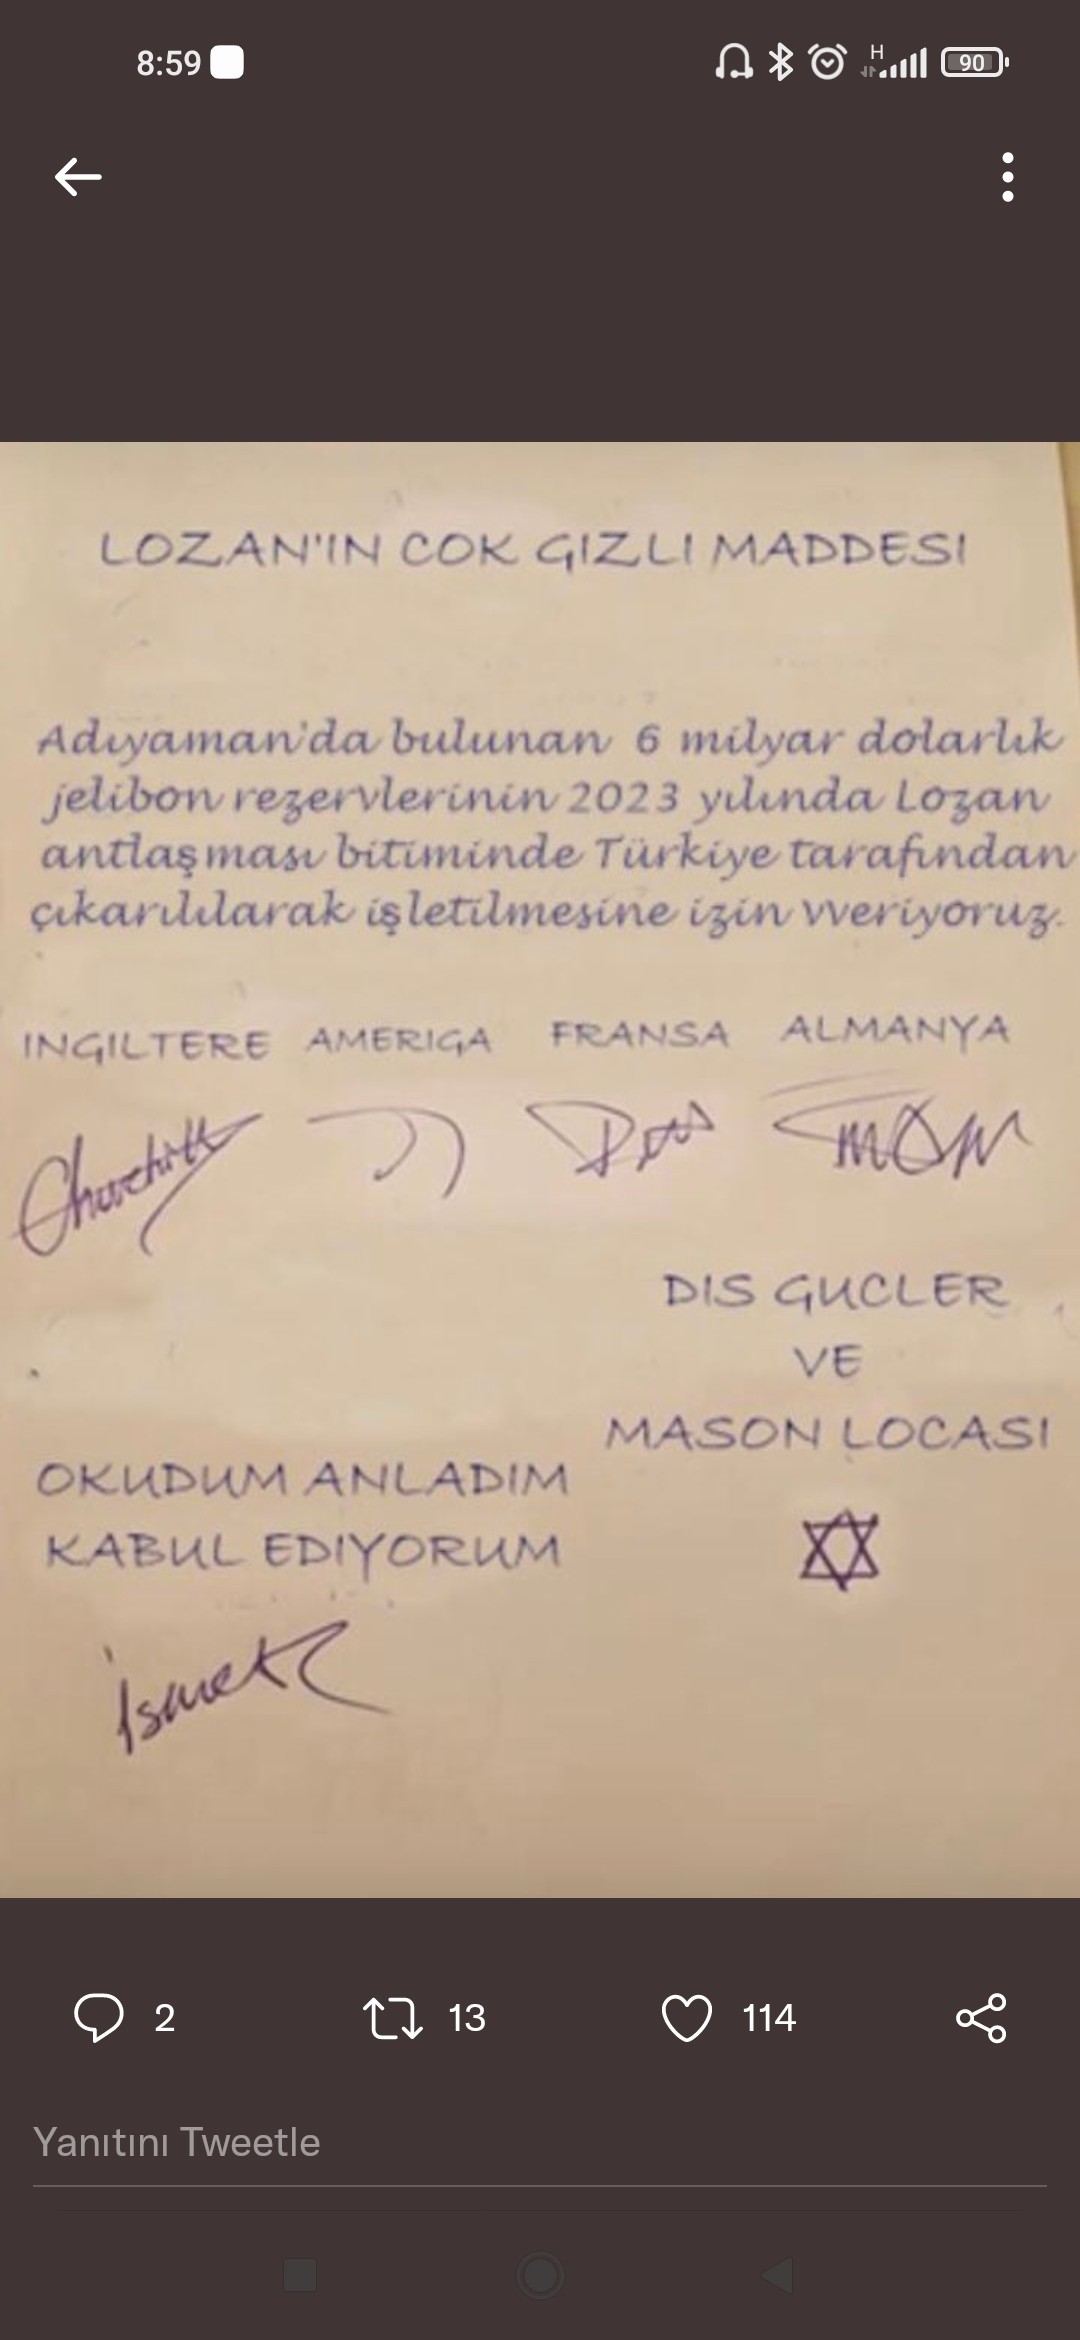 8:59
H
90
LOZAN'IN COK GIZLI MADDESI
Adıyaman'da bulunan 6 milyar dolarlık
jelibon rezervlerinin 2023 yılında Lozan
antlaşması bitiminde Türkiye tarafından
çıkarılılarak işletilmesine izin vveriyoruz.
INGILTERE AMERIGA FRANSA ALMANYA
Churchill
DIS GUCLER
VE
MASON LOCASI
OKUDUM ANLADIM
KABUL EDIYORUM
İsmet
2 13 114
Yanıtını Tweetle